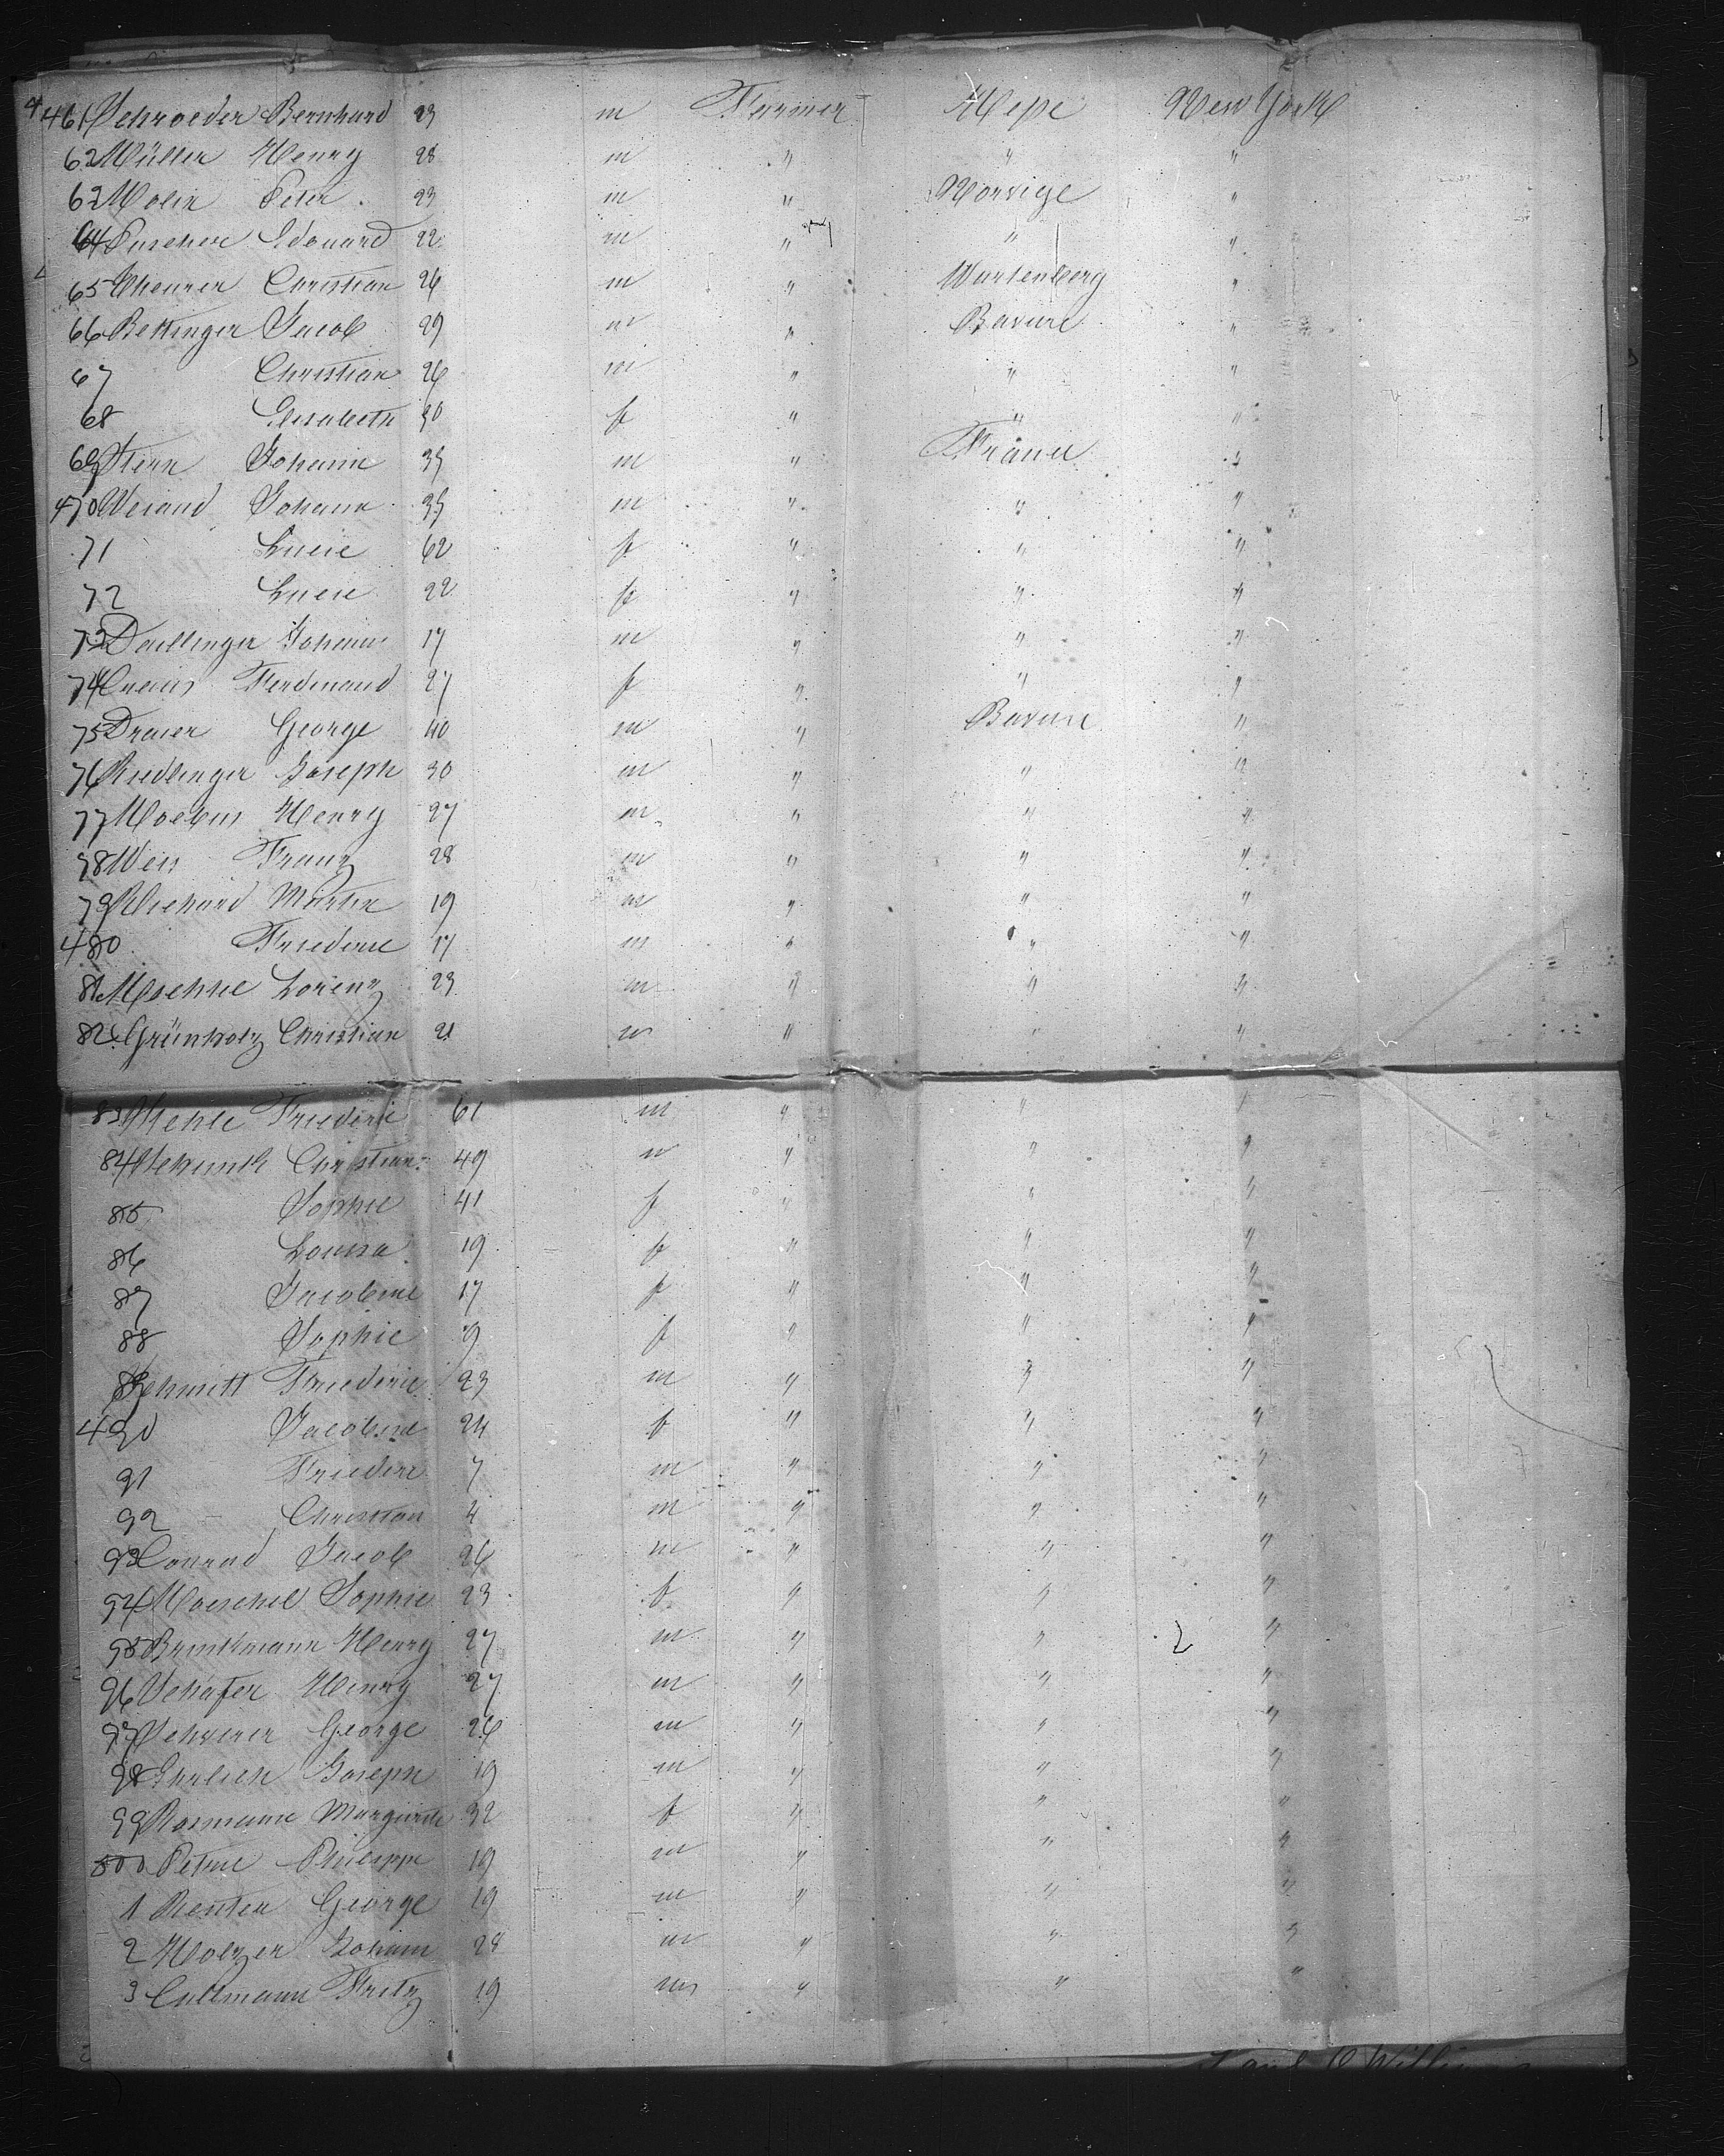 461 Schroeder Bernhard 23 m Farmer Hesse New York
62 Müller Henry 28 m " " "
63 Molin Peter 23 m " Norvige "
64 Edouard 22 m " " "
65 Scheurer Christian 26 m " Wurtenberg "
66 Bettinger Jacob 29 m " Baviere "
67 Christian 26 m " " "
68 Elisabeth 30 f " " "
69 Stern Johann 33 m " France "
470 Weiand Johann 35 m " " "
71 Lucie 62 f " " "
72 Lucie 22 f " " "
73 Johann 17 m " " "
74 Ferdinand 27 f " " "
75 Draier George 40 m " Baviere "
76 Riedlinger Joseph 30 m " " "
77 Moebus Henry 27 m " " "
78 Weis Franz 28 m " " "
79 Martin 19 m " " "
480 Friederic 17 m " " "
81 Lorenz 23 m " " "
82 Grünholz Christian 21 m " " "
83 Friederic 61 m " " "
84 Schunk Christian 49 m " " "
85 Sophie 41 f " " "
86 Louisa 19 f " " "
87 Jacobine 17 f " " "
88 Sophie 9 f " " "
89 Schmitt Friederic 23 m " " "
490 Jacobine 24 f " " "
91 Friederic 7 m " " "
92 Christian 4 m " " "
93 Conrad Jacob 26 m " " "
94 Moeschel Sophie 23 f " " "
95 Brinkmann Henry 27 m " " "
96 Schäfer Henry 27 m " " "
97 Scherer George 26 m " " "
98 Ehrlich Joseph 19 m " " "
99 Rosmann Marguerite 32 f " " "
500 Petrie Philippe 19 m " " "
1 Reuter George 19 m " " "
2 Holzer Johann 28 m " " "
3 Cullmann Fritz 19 m " " "